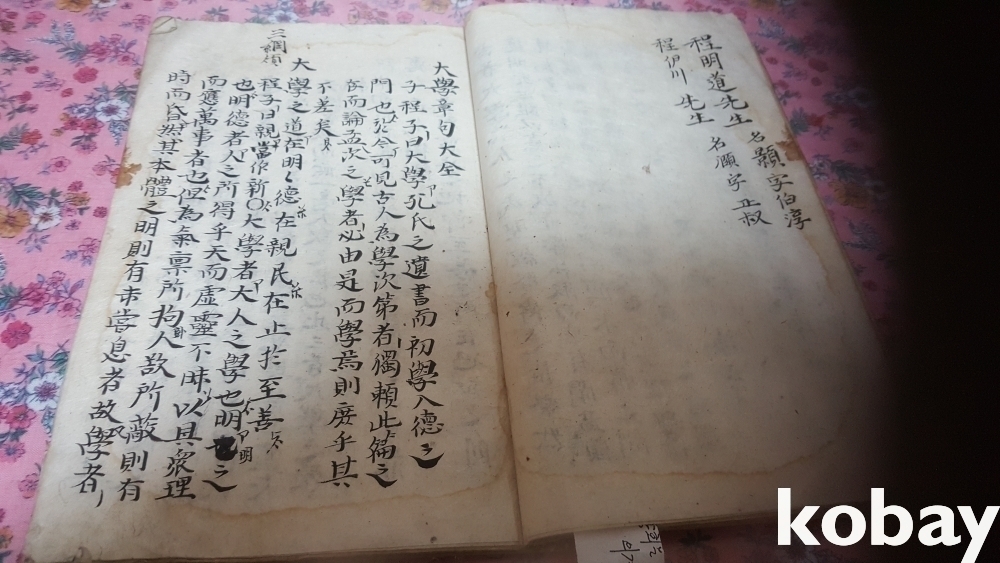 程明道先生 名顥 字伯淳
程伊川 先生 名 字正叔
大學章句大全
子程子曰大學孔氏之遺書而初學入德之
門也於今可見古人為學次第者獨賴此篇之
存而論孟次之學者必由是而學焉則庶乎其
不差矣
三綱領
大學之道在明〻德在親民在止於至善
程子曰親當作新○大學者大人之學也明
明之
也明德者人之所得乎天而虛靈不昧以具衆理
而應萬事者也但為氣稟所拘人欲所蔽則有
時而昏然其本體之明則有未嘗息者故學者
kobay